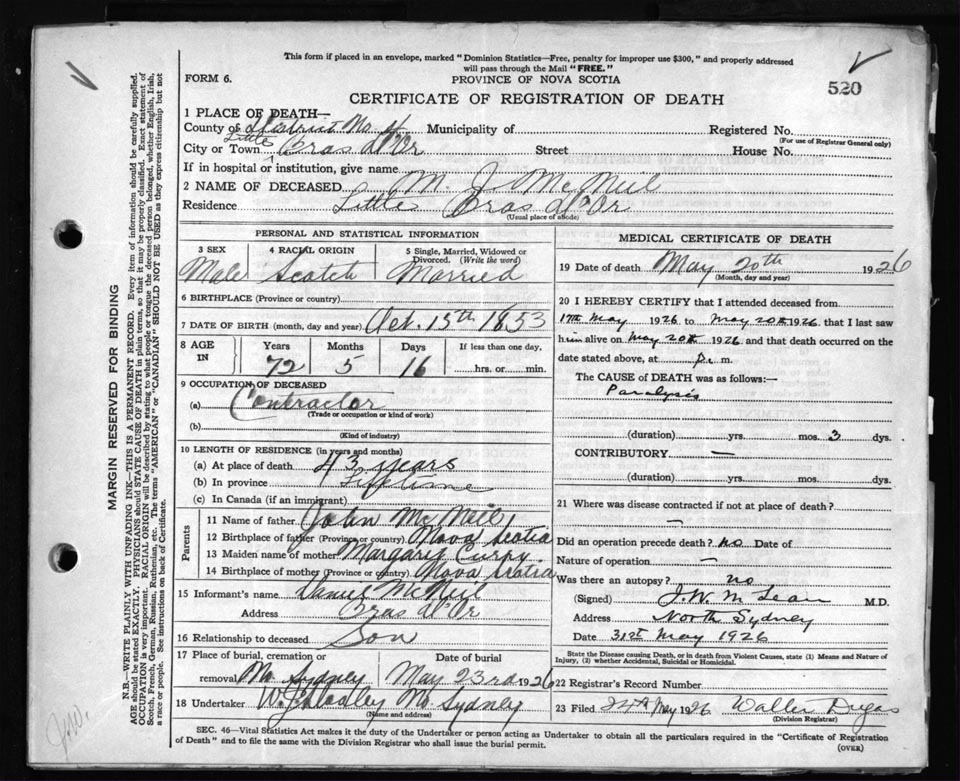 This form if placed in an envelope, marked "Dominion Statistics—Free, penalty for improper use $300," and properly addressed
will pass through the Mail "FREE."
FORM 6.
PROVINCE OF NOVA SCOTIA
520
CERTIFICATE OF REGISTRATION OF DEATH
1 PLACE OF DEATH—
County of District No 4 Municipality of Registered No.
(For use of Registrar General only)
City or Town Little Bras d'Or Street House No.
If in hospital or institution, give name
2 NAME OF DECEASED M. J. McNeil
Residence Little Bras d'Or
(Usual place of abode)
PERSONAL AND STATISTICAL INFORMATION
3 SEX 4 RACIAL ORIGIN 5 Single, Married, Widowed or Divorced. (Write the word)
Male Scotch Married
6 BIRTHPLACE (Province or country)
7 DATE OF BIRTH (month, day and year) Oct. 15th 1853
8 AGE IN Years Months Days If less than one day,
72 5 16 hrs. or min.
9 OCCUPATION OF DECEASED
(a) Contractor
(Trade or occupation or kind of work)
(b)
(Kind of industry)
10 LENGTH OF RESIDENCE (in years and months)
(a) At place of death 43 years
(b) In province Lifetime
(c) In Canada (if an immigrant)
Parents
11 Name of father John McNeil
12 Birthplace of father (Province or country) Nova Scotia
13 Maiden name of mother Margaret
14 Birthplace of mother (Province or country) Nova Scotia
15 Informant's name McNeil
Address Bras d'Or
16 Relationship to deceased Son
17 Place of burial, cremation or Date of burial
removal No. Sydney May 23rd 1926
18 Undertaker No Sydney
(Name and address)
MEDICAL CERTIFICATE OF DEATH
19 Date of death May 20th 1926
(Month, day and year)
20 I HEREBY CERTIFY that I attended deceased from
17th May 1926 to May 20th 1926 that I last saw
him alive on May 20th 1926 and that death occurred on the
date stated above, at P. m.
The CAUSE of DEATH was as follows:—
Paralysis
(duration) yrs. mos. 3 dys.
CONTRIBUTORY —
(duration) yrs. mos. dys.
21 Where was disease contracted if not at place of death?
—
Did an operation precede death? no Date of
Nature of operation —
Was there an autopsy? no
(Signed) J. W. McLean M.D.
Address North Sydney
Date 31st May 1926
State the Disease causing Death, or in death from Violent Causes, state (1) Means and Nature of
Injury, (2) whether Accidental, Suicidal or Homicidal.
22 Registrar's Record Number
23 Filed 24th May 1926 Walter Dugas
(Division Registrar)
SEC. 46—Vital Statistics Act makes it the duty of the Undertaker or person acting as Undertaker to obtain all the particulars required in the "Certificate of Registration
of Death" and to file the same with the Division Registrar who shall issue the burial permit.
(OVER)
MARGIN RESERVED FOR BINDING
N.B.—WRITE PLAINLY WITH UNFADING INK—THIS IS A PERMANENT RECORD. Every item of information should be carefully supplied.
AGE should be stated EXACTLY. PHYSICIANS should STATE CAUSE OF DEATH in plain terms, so that it may be properly classified. Exact statement of
OCCUPATION is very important. RACIAL ORIGIN will be described by stating to what people or tongue the deceased person belonged, whether English, Irish,
Scotch, French, German, Russian, Ruthenian, etc. The terms "AMERICAN" or "CANADIAN" SHOULD NOT BE USED as they express citizenship but not
a race or people. See instructions on back of Certificate.